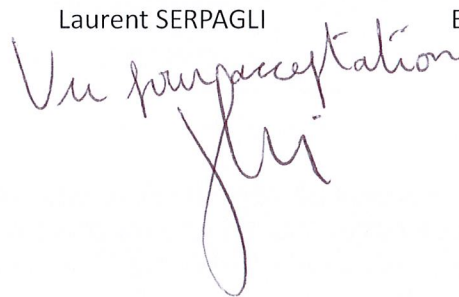 Laurent SERPAGLI E
Vu pour acceptation